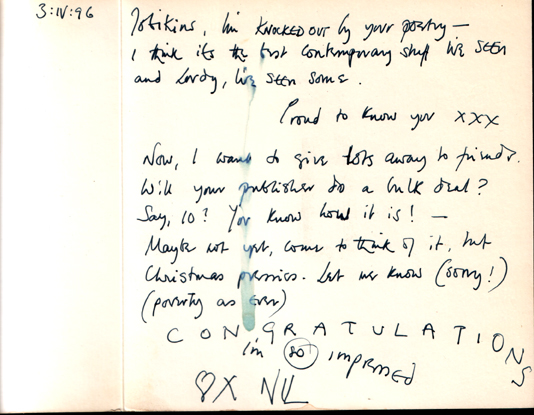 3:IV:96
Tobikins, I'm KNOCKED OUT by your poetry —
I think it's the best contemporary stuff I've SEEN
and Lordy, I've SEEN some.
Proud to know you xxx
Now, I want to give lots away to friends.
Will your publisher do a bulk deal?
Say, 10? You know how it is! —
Maybe not yet, come to think of it, but
Christmas prezzies. Let me know (sorry!)
(poverty as ever)
CONGRATULATIONS
I'm SO IMPRESSED
♡X